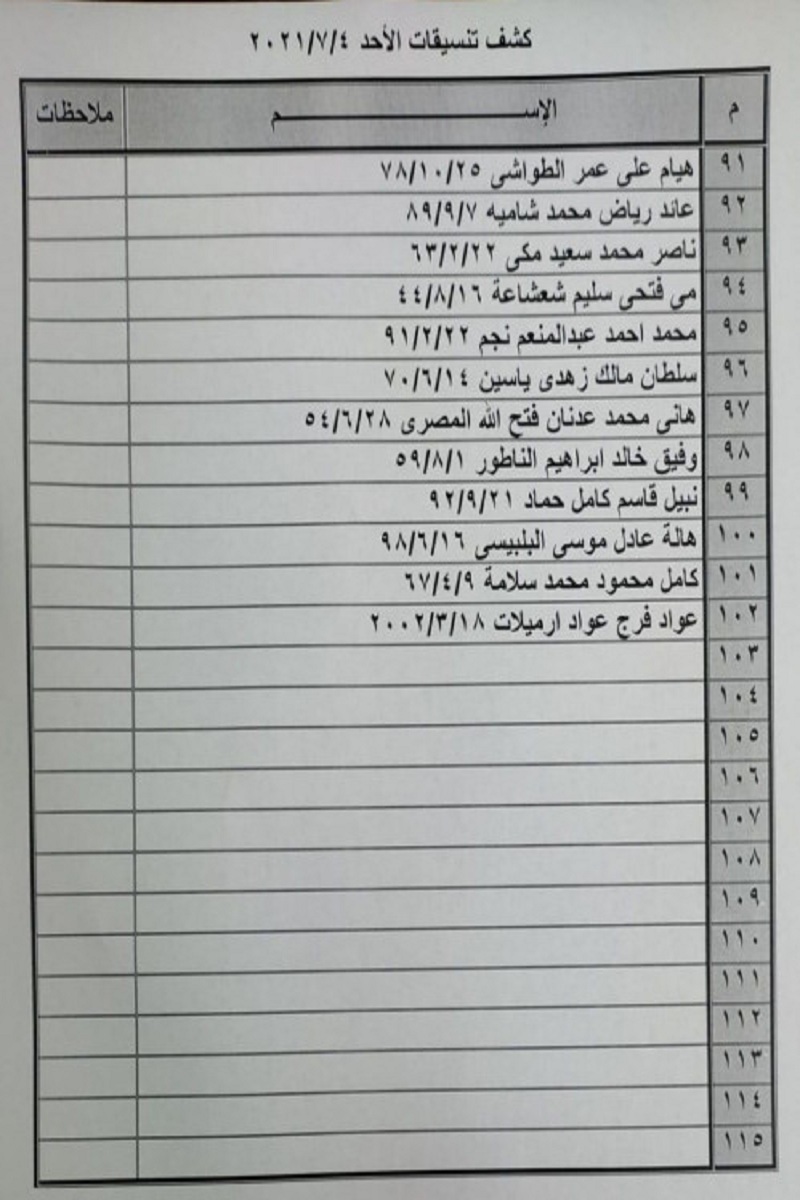 كشف تنسيقات الأحد ٢٠٢١/٧/٤
م الإســـــــــــــم ملاحظات
٩١ هيام على عمر الطواشى ٧٨/١٠/٢٥
٩٢ عائد رياض محمد شاميه ٨٩/٩/٧
٩٣ ناصر محمد سعيد مكى ٦٣/٢/٢٢
٩٤ مى فتحى سليم شعشاعة ٤٤/٨/١٦
٩٥ محمد احمد عبدالمنعم نجم ٩١/٢/٢٢
٩٦ سلطان مالك زهدى ياسين ٧٠/٦/١٤
٩٧ هانى محمد عدنان فتح الله المصرى ٥٤/٦/٢٨
٩٨ وفيق خالد ابراهيم الناطور ٥٩/٨/١
٩٩ نبيل قاسم كامل حماد ٩٢/٩/٢١
١٠٠ هالة عادل موسى البلبيسى ٩٨/٦/١٦
١٠١ كامل محمود محمد سلامة ٦٧/٤/٩
١٠٢ عواد فرج عواد ارميلات ٢٠٠٢/٣/١٨
١٠٣
١٠٤
١٠٥
١٠٦
١٠٧
١٠٨
١٠٩
١١٠
١١١
١١٢
١١٣
١١٤
١١٥